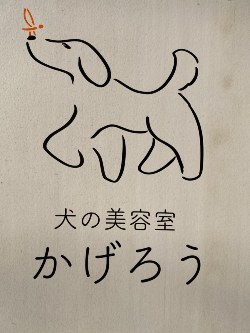 犬の美容室
かげろう